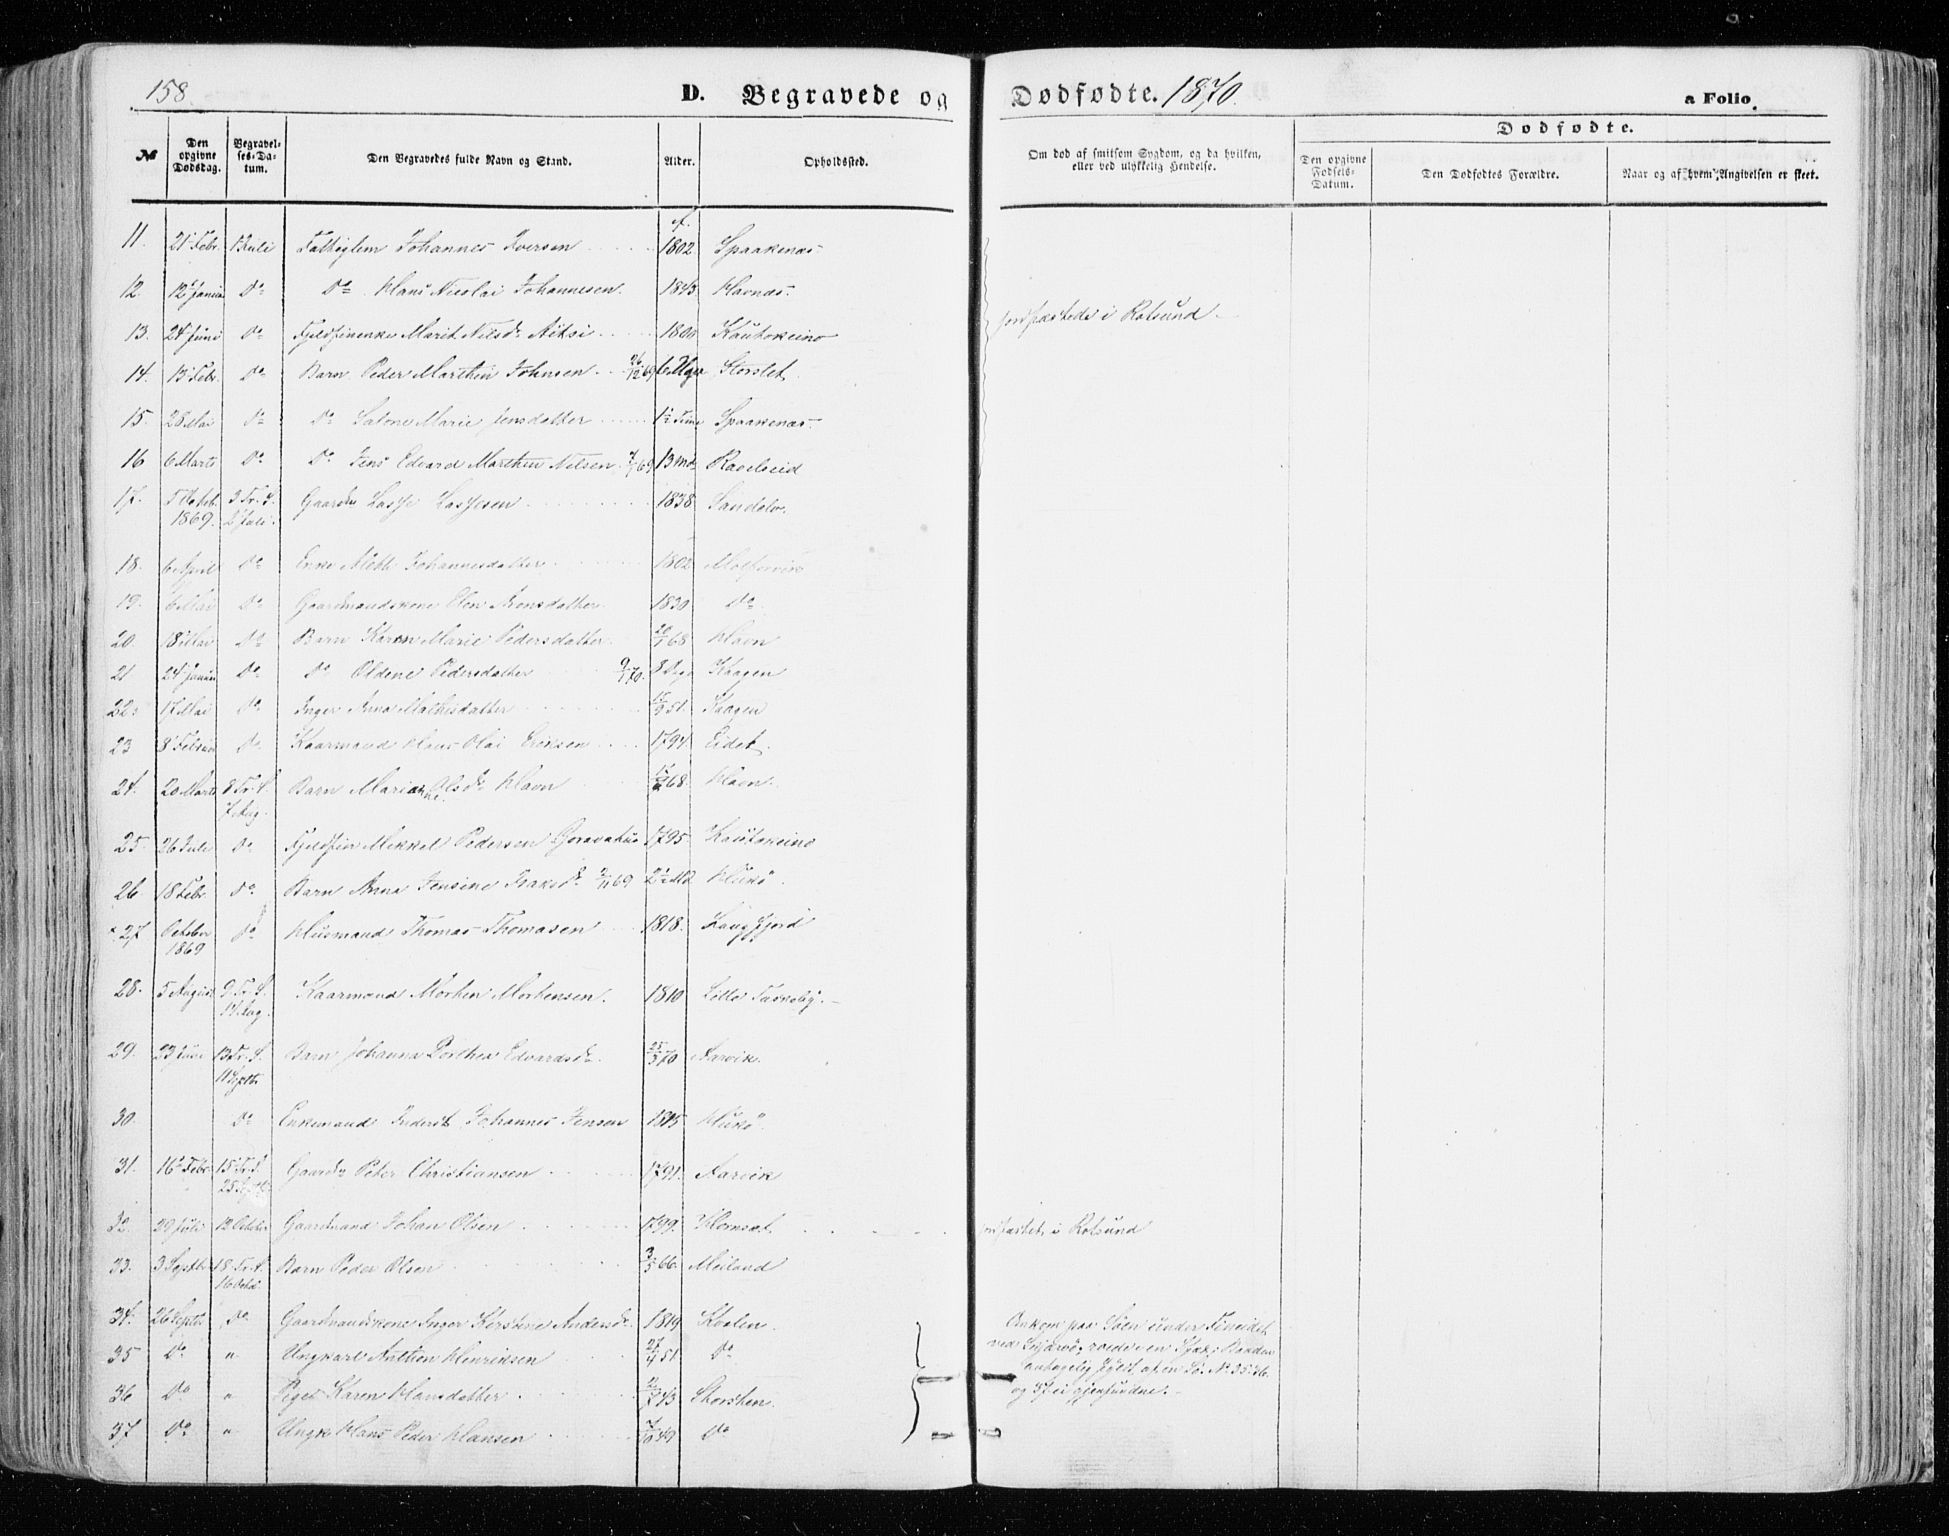 158
D. Begravede og Dødfødte. 1870.
a Folio.
№
Den opgivne Dødsdag.
Begravelses-Datum.
Den Begravedes fulde Navn og Stand.
Alder.
Opholdssted.
Om død af smitsom Sygdom, og da hvilken, eller ved ulykkelig Hendelse.
Dødfødte.
Den opgivne Fødsels-Datum.
Den Dødfødtes Forældre.
Naar og af hvem Angivelsen er skeet.
f.
11. 21 Febr. 1 Juli Fattiglem Johannes Iversen 1802 Spaakenæs
12. 12 Janua Do Do Hans Nicolai Johannesen. 1843 Havnæs.
13. 24 Juni Do Fjeldfinenke Marit Nilsdr 1800 Kautokeino jordfæstede i Rotsund.
14. 13 Febr. Do Barn Peder Marthin Johnsen 26/12 69 6 Uger Storslet
15. 28 Mai Do Do Salone Marie Jensdatter 1½ Time Spaakenæs
16 6 Marts Do Do Jens Edvard Marthin Nilsen 69 13 Md Ravelseid
17. 5 Octob. 3 Tr. S. Gaardm Lasse Lassesen 1838
1869. 2 Juli
18. 6 April Do Enke Johannesdatter 1802
19. 6 Mai Do Gaardmandskone Elen Monsdatter 1830 Do
20. 18 Mai Do Barn Karen Marie Pedersdatter 68 Havn
21 24 Janua Do Do Oldene Pedersdatter 9/1 70. 8 Dage Kaagen
22. 17 Mai Do Inger Anna Mathisdatter 51. Kaagen
23 8 Februar Do Kaarmand Hans Olai Eriksen 1794. Eidet.
24. 20 Marts 8 Tr. S. Barn Marianne Olsdr Havn 68. Havn.
7 Aug.
25. 26 Juli Do Fjeldfin Mikkel Pedersen 1795 Kautokeino
26. 18 Febr. Do Barn Anna Jensine Isaksdr. 2/11 69 2½ Md Hukø.
27 October Do Husmand Thomas Thomasen 1818. Langfjord
1869
28. 5 August 9 Tr. S. Kaarmand Morten Mortensen. 1810 Lille Taskeby.
14 Aug.
29. 23 Juni 13 Tr. S. Barn Johanna Dorthea Edvardsdr. 25/3 70 Aarvik
11 Septb
30. Do Enkemand Johannes Jensen 1815 Hukø.
31. 16 Febr. 15 Tr. S. Gaardm Peter Christiansen 1791. Aarvik
25 Septb
32. 29 Juli 12 October Gaardmand Johan Olsen 1799. jordfæstet i Rotsund
33. 3 Septbr 18 Tr. S. Barn Peder Olsen 3/5 66. Meiland
16 Octb.
34. 26 Septbr Do Gaardmandskone Inger Kirstine Andersdr. 1819 Kvalen.
35 Do " Ungkarl Anthon Henriksen 27/4 51. Do
36 Do " Pige Karen Hansdatter. 43 Storsten.
37 Do " Ungk Hans Peder Hansen 49 Do
Omkom paa Søen under
ved Skjærvø,
af en Sø. No. 35. 36.
og 37 ei gjenfundne.